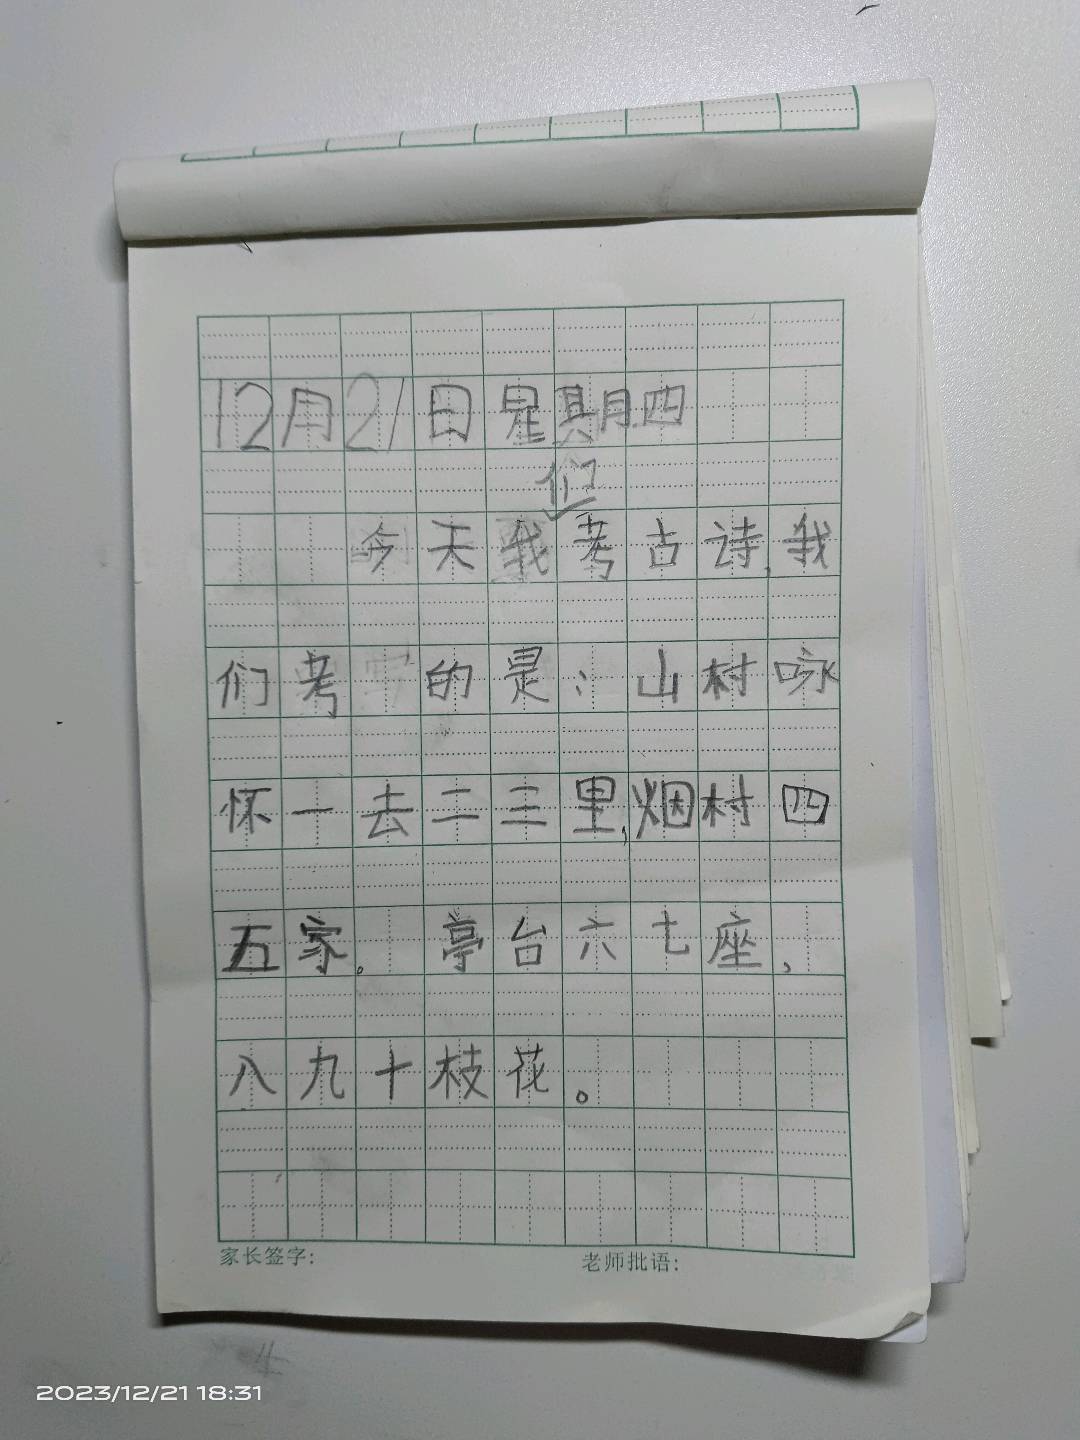 12月21日是期四
今天我们考古诗,我
们考的是:山村咏
怀一去二三里,烟村四
五家。亭台六七座,
八九十枝花。
家长签字: 老师批语:
2023/12/21 18:31